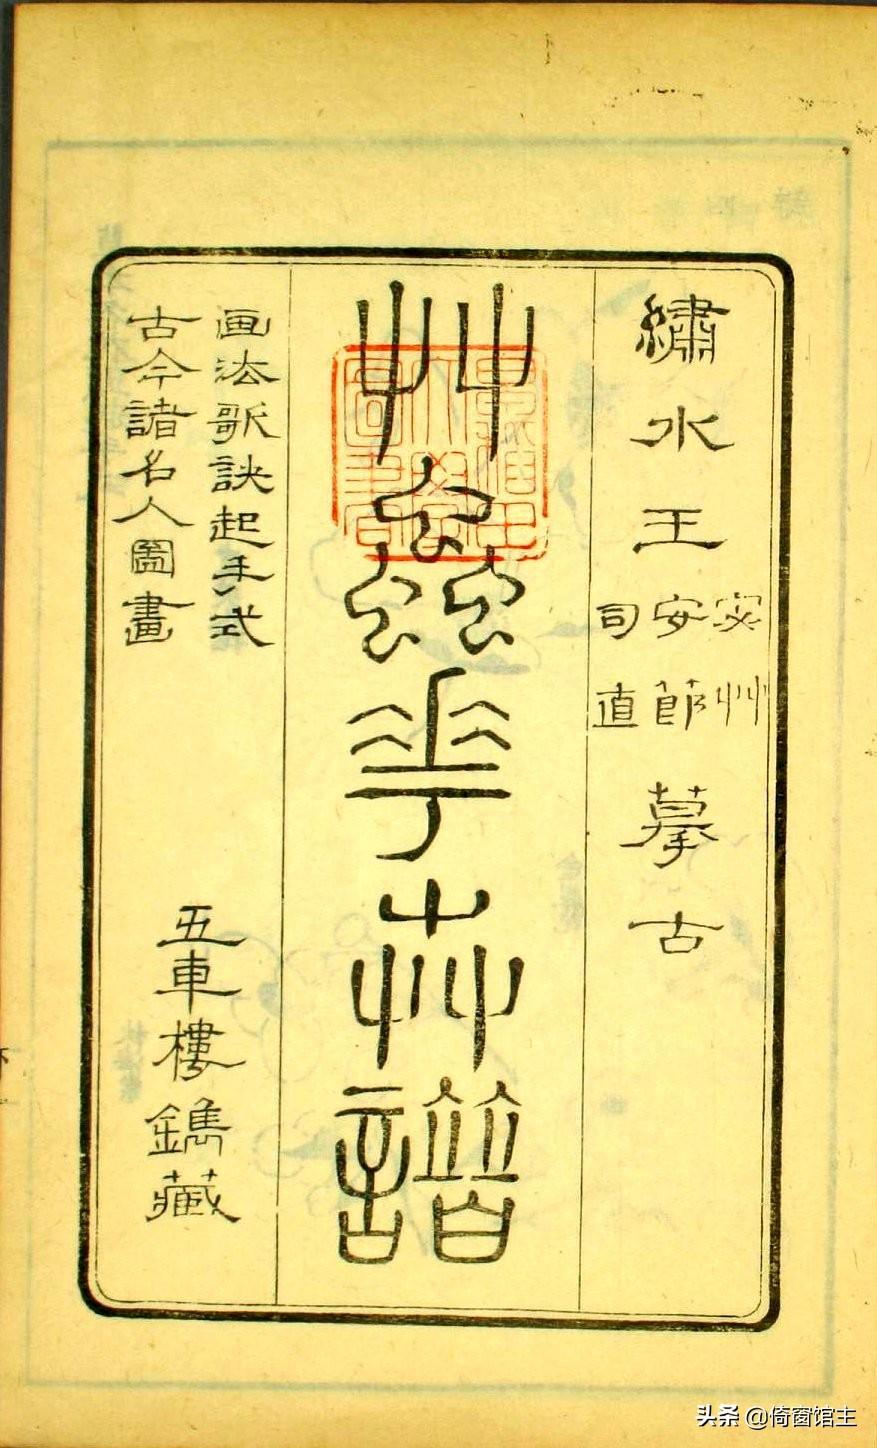 繡水王
宓艸
安節
司直
摹古
艸蟲花卉譜
画法歌訣起手式
古今諸名人圖畫
五車樓鐫藏
头条 @倚窗馆主